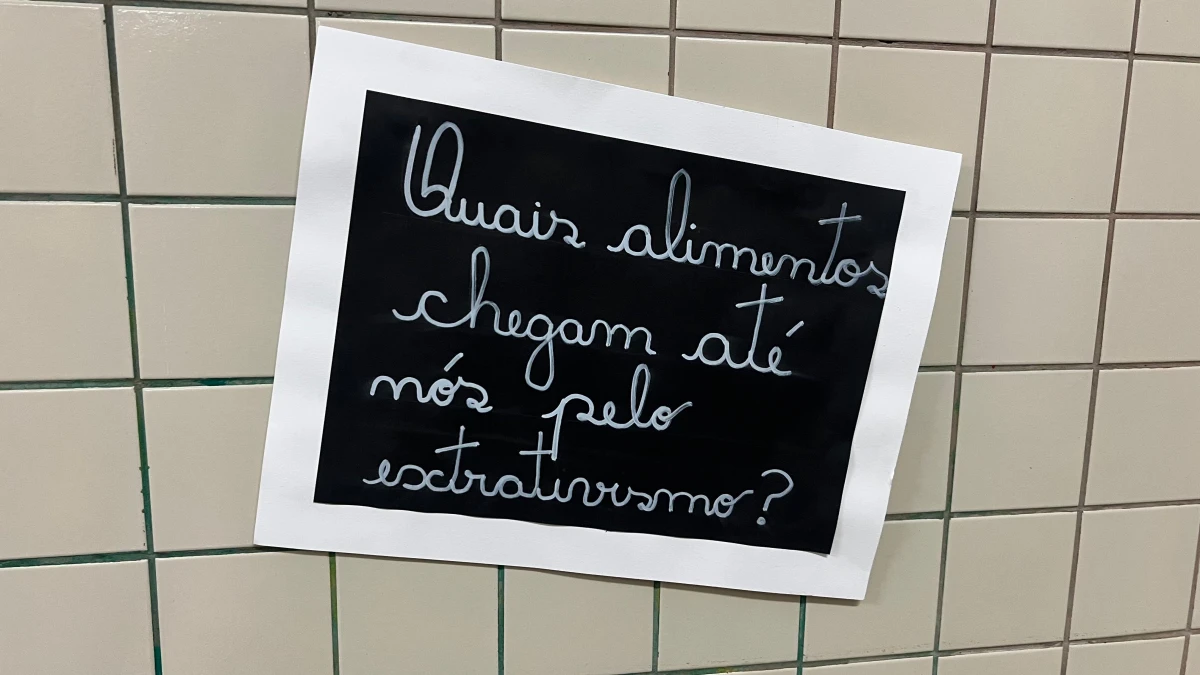 Quais alimentos
chegam até
nós pelo
extrativismo?